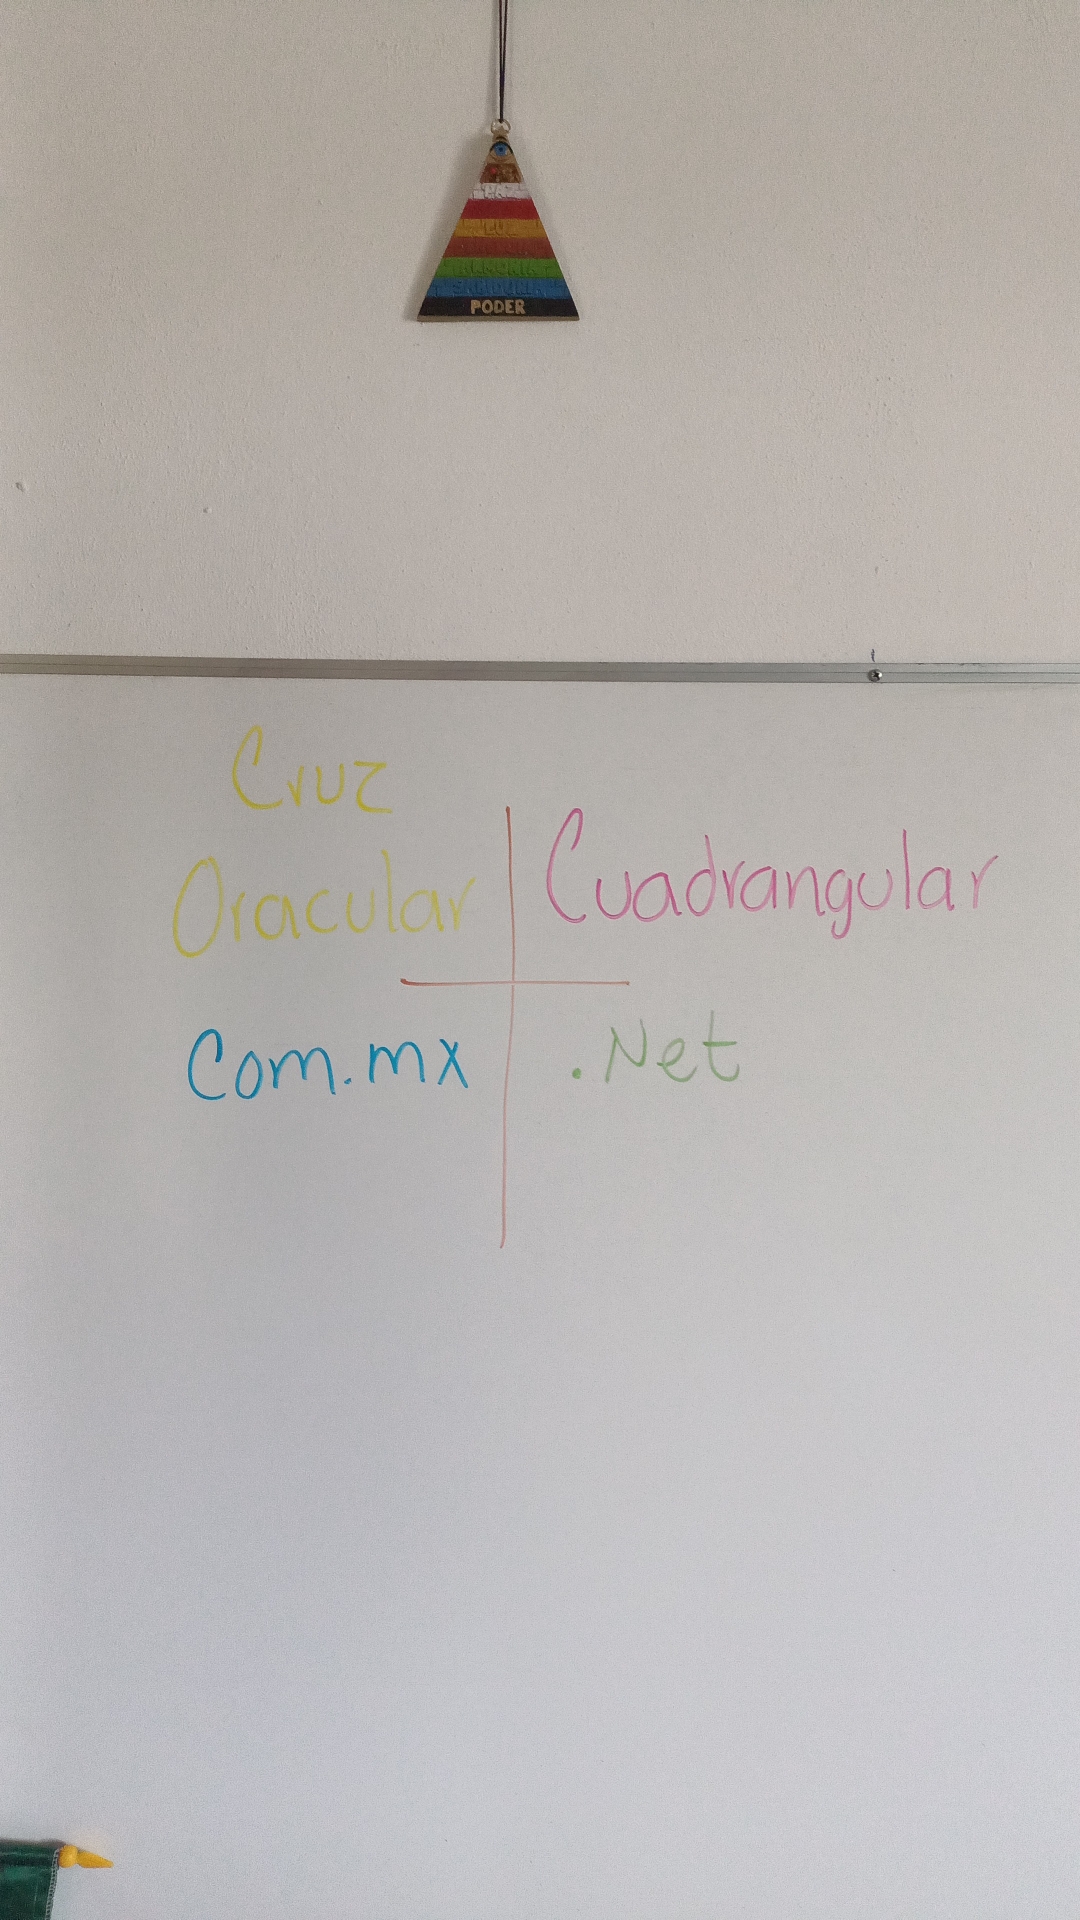 PAZ
LUZ
ARMONIA
SABIDURIA
PODER
Cruz
Oracular
Cuadrangular
Com.mx
.Net